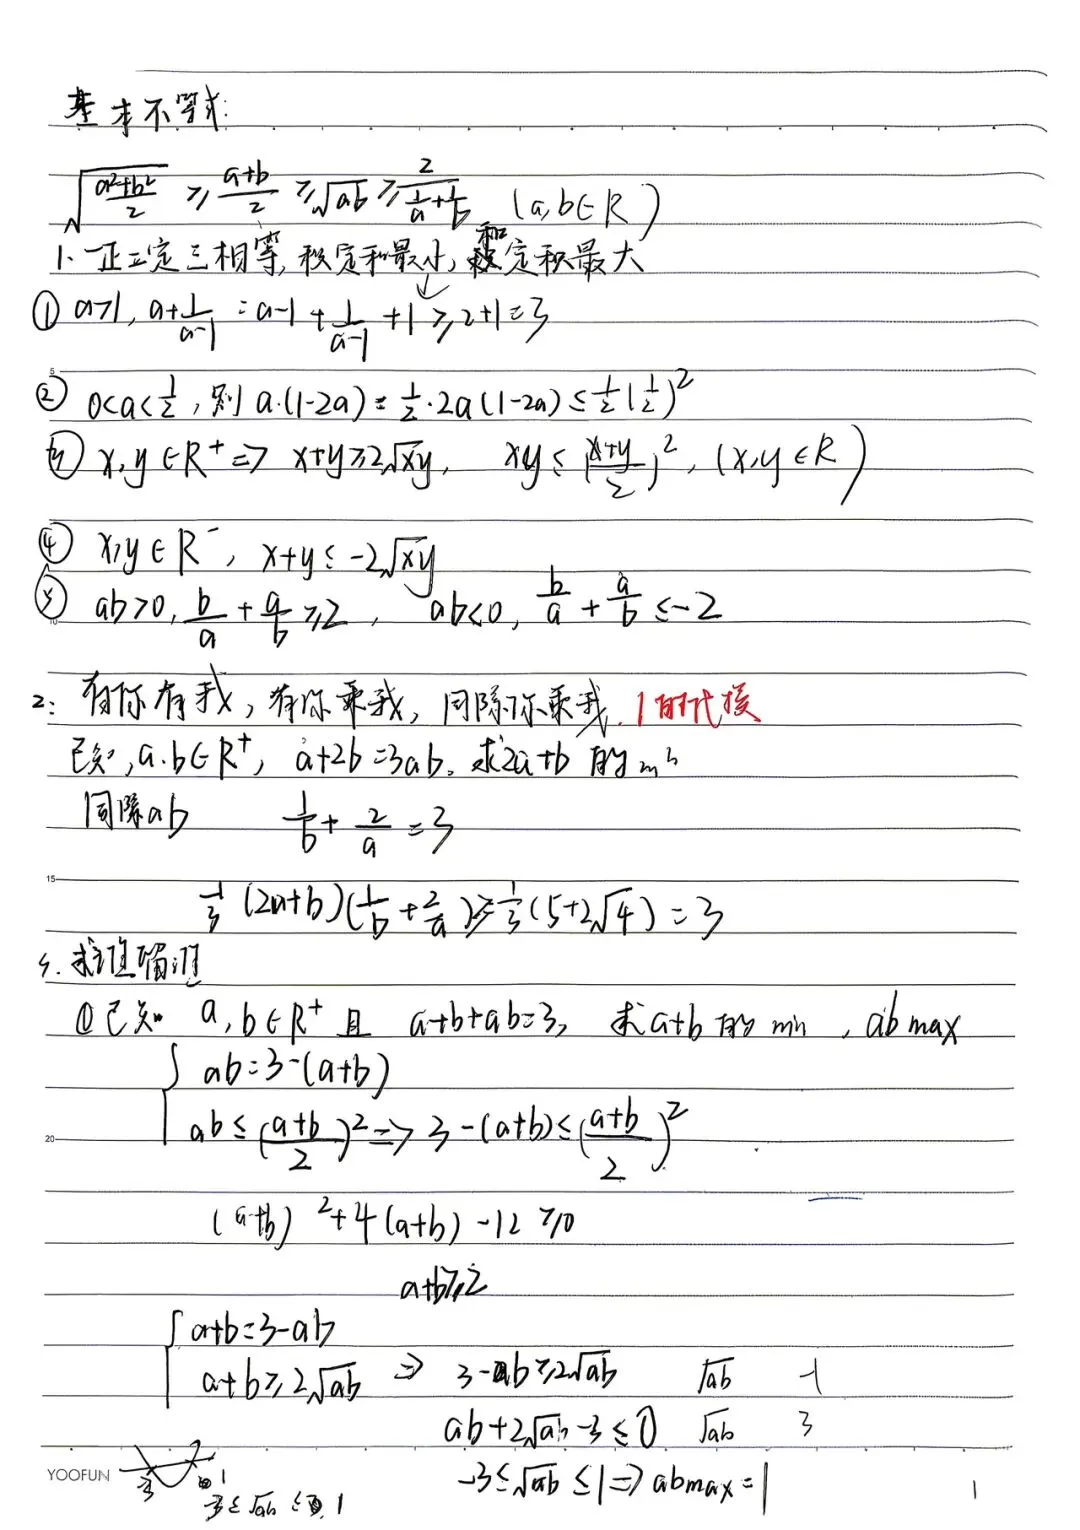 基本不等式:
√((a²+b²)/2) ≥ (a+b)/2 ≥ √ab ≥ 2/(1/a+1/b) (a,b∈R)
1、一正二定三相等, 积定和最小, 和定积最大
① a>1, a+1/(a-1) = a-1+1/(a-1)+1 ≥ 2+1=3
② 0<a<1/2, 则 a·(1-2a) = 1/2·2a(1-2a) ≤ 1/2(1/2)²
③ x,y∈R⁺ => x+y≥2√xy, xy≤((x+y)/2)², (x,y∈R)
④ x,y∈R⁻, x+y≤-2√xy
⑤ ab>0, b/a+a/b≥2, ab<0, b/a+a/b≤-2
2: 有你有我, 有你乘我, 同除你乘我. 1的代换
已知, a.b∈R⁺, a+2b=3ab. 求2a+b的min
同除ab 1/b+2/a=3
1/3(2a+b)(1/b+2/a)≥1/3(5+2√4)=3
①已知 a,b∈R⁺且 a+b+ab=3, 求a+b的min, ab max
{ ab=3-(a+b)
ab≤((a+b)/2)² => 3-(a+b)≤((a+b)/2)²
(a+b)²+4(a+b)-12≥0
a+b≥2
{ a+b=3-ab
a+b≥2√ab => 3-ab≥2√ab √ab -1
ab+2√ab-3≤0 √ab 3
-3≤√ab≤1 => ab max=1
YOOFUN
1
5
10
15
20